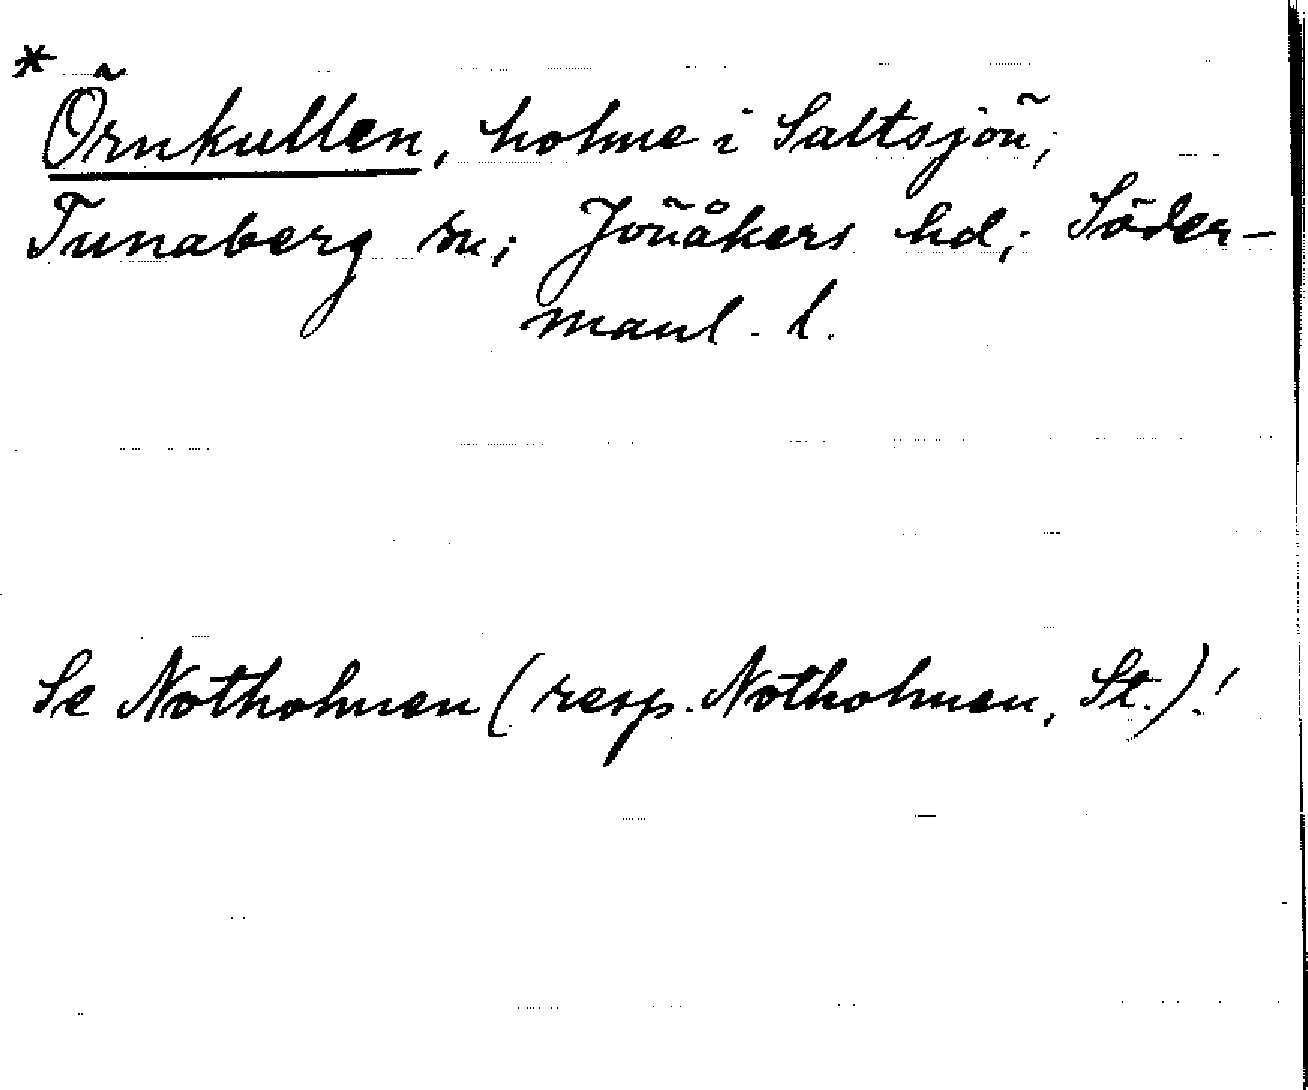 *
Örnkullen, holme i Saltsjön;
Tunaberg sn; Jönåkers hd; Söder-
manl. l.
Se Notholmen (resp. Notholmen, St.)!